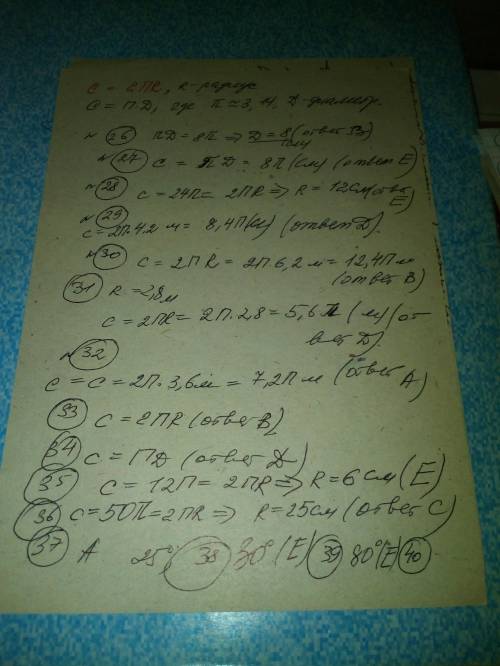 C = 2ПR, R - радиус
C = ПД, где П ≈ 3,14, Д - диаметр.
№ 26 ПД = 8П => Д = 8 (ответ В)
см
№ 27 C = ПД = 8П (см) (ответ Е)
№ 28 C = 24П = 2ПR => R = 12 см (ответ Е)
№ 29
C = 2П·4,2 м = 8,4П (м) (ответ Д).
№ 30 C = 2ПR = 2П 6,2 м = 12,4П м
(ответ В)
31 R = 2,8 м
C = 2ПR = 2П·2,8 = 5,6П (м) (от
вет Д).
№ 32
C = C = 2П·3,6 м = 7,2П м (ответ А)
33 C = 2ПR (ответ В)
34 C = ПД (ответ Д)
35 C = 12П = 2ПR => R = 6 см (Е)
36 C = 50П = 2ПR => R = 25 см (ответ С)
37 А 25° 38 30° (Е) 39 80° (Е) 40